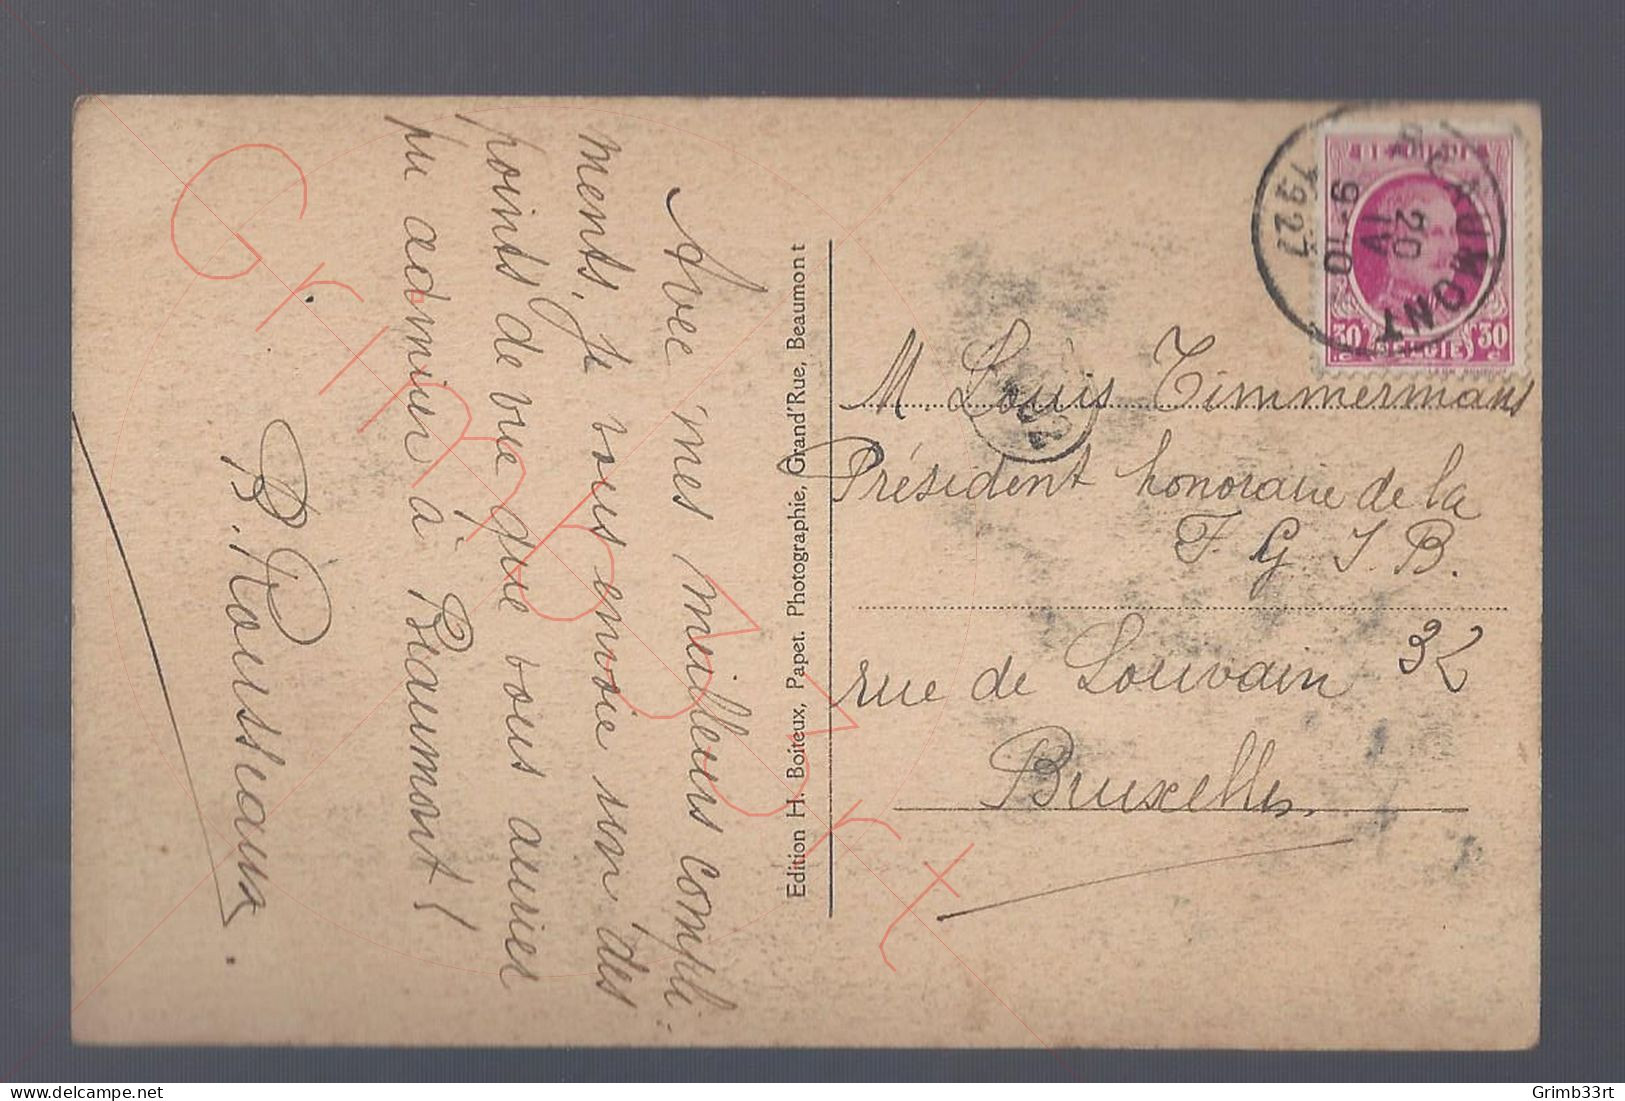 Avec mes meilleurs compli-
ments, je vous envoie un des
points de vue que vous auriez
pu admirer à Beaumont!
B. Rousseaux.
Edition H. Boiteux, Papet. Photographie, Grand'Rue, Beaumont
BEAUMONT
9-10
20
IV
1927
30 BELGIE 30
M. Louis Timmermans
Président honoraire de la
F G I B.
rue de Louvain 32
Bruxelles.
Grimb33rt
delcampe.net
Grimb33rt